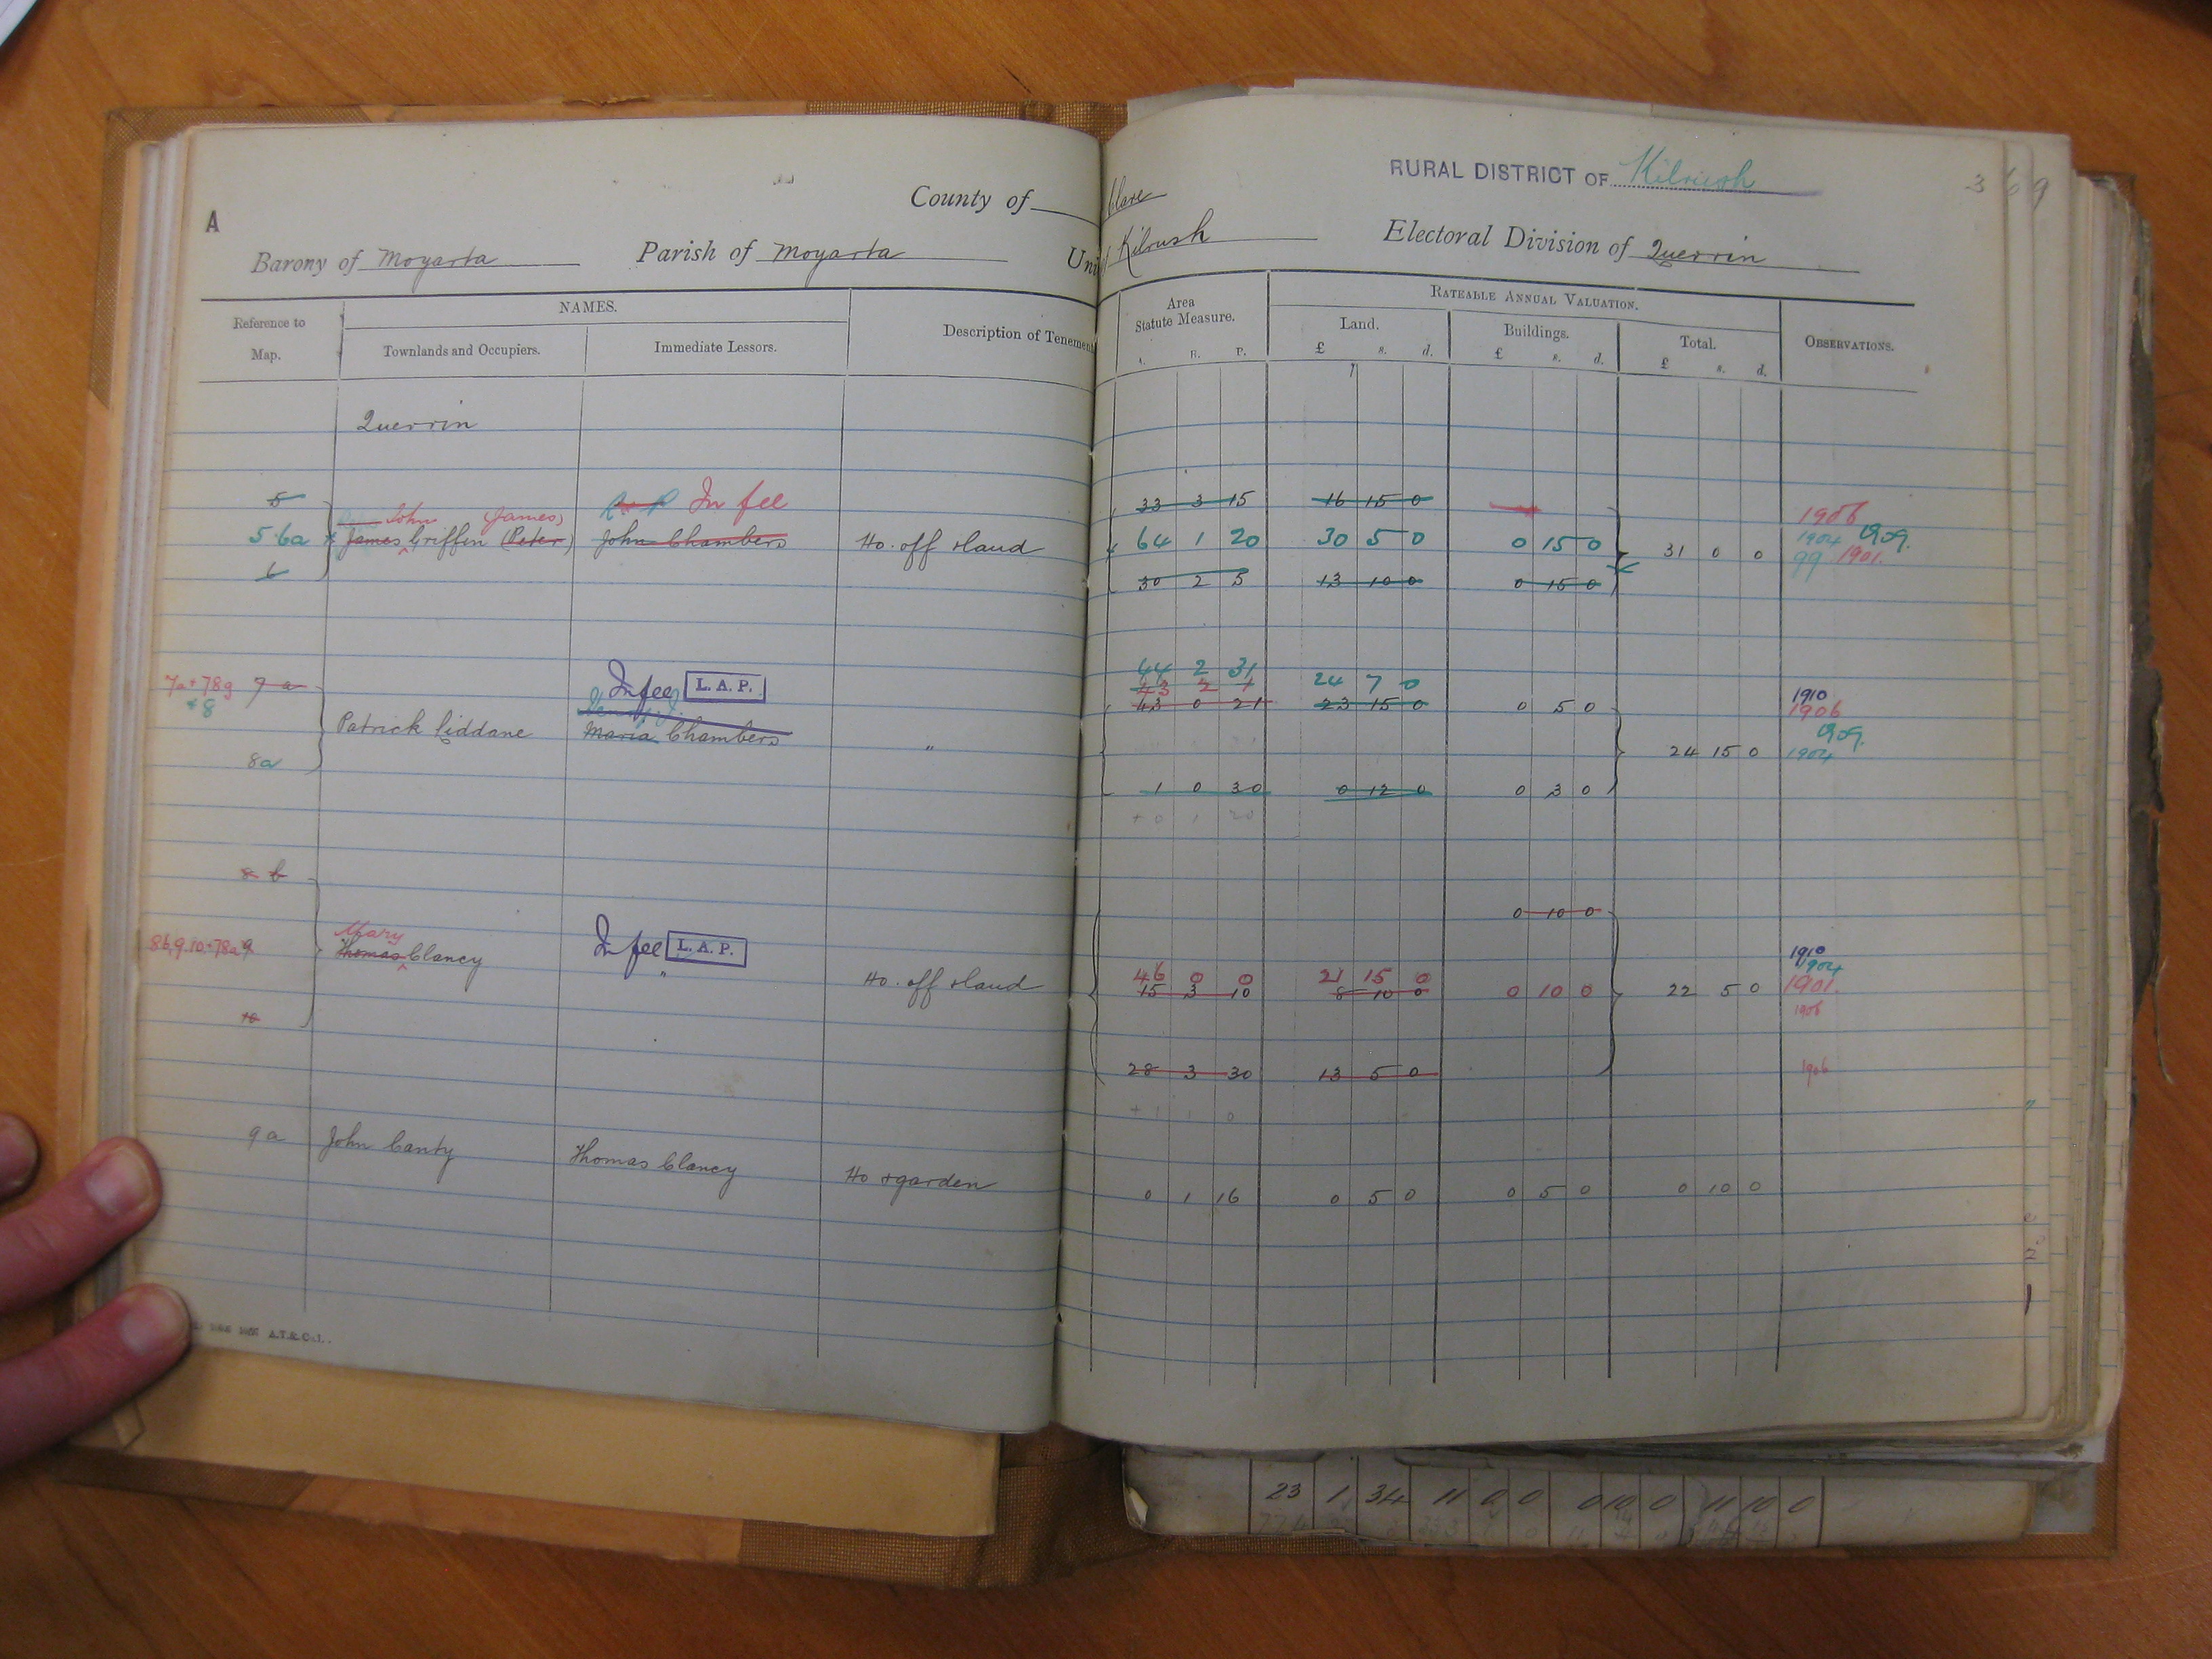 RURAL DISTRICT OF Kilrush
369
A
County of Clare
Barony of Moyarta Parish of Moyarta Uni Kilrush Electoral Division of Querrin
Reference to Map.
NAMES.
Townlands and Occupiers.
Immediate Lessors.
Description of Tenemen
Area Statute Measure.
A. R. P.
RATEABLE ANNUAL VALUATION.
Land.
£ s. d.
Buildings.
£ s. d.
Total.
£ s. d.
OBSERVATIONS.
Querrin
5 In fee 33 3 15 16 15 0 1906
John James
5.6a James Griffin (Peter) John Chambers Ho. off & land 64 1 20 30 5 0 0 15 0 31 0 0 1904 1909.
99 1901.
6 30 2 5 13 10 0 0 15 0
44 2 31 24 7 0
7a+78g 7 a In fee L. A. P. 43 2 1
+8 43 0 21 23 15 0 0 5 0 1910
1906
Patrick Liddane Maria Chambers " 24 15 0 1909.
1904
8a 1 0 30 0 12 0 0 3 0
+ 0 1 20
8 b 0 10 0
Mary
8b,9.10.+78a 9 Thomas Clancy In fee L. A. P. 1910
" Ho. off & land 46 0 0 21 15 0 1904
15 3 10 8 10 0 0 10 0 22 5 0 1901.
1906
10 28 3 30 13 5 0 1906
+ 1 1 0
9 a John Canty Thomas Clancy Ho & garden 0 1 16 0 5 0 0 5 0 0 10 0
A.T.&Co.L.
23 1 34 11 0 0 0 10 0 11 10 0